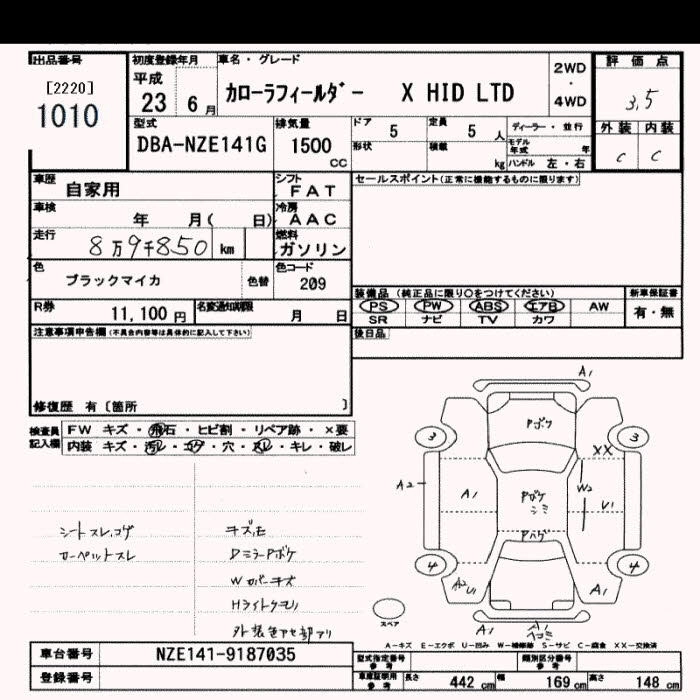 出品番号
[2220]
1010
初度登録年月
平成
23 6月
車名・グレード
カローラフィールダー X HID LTD
2WD
・
4WD
評価点
3.5
型式
DBA-NZE141G
排気量
1500
CC
ドア 5
定員 5 人
形状
積載 kg
ディーラー・並行
モデル年式 年
ハンドル 左・右
外装 内装
C C
車歴
自家用
シフト
FAT
車検
年 月( 日)
冷房
AAC
走行
8万9千850 km
燃料
ガソリン
色
ブラックマイカ
色替
色コード
209
R券
11,100円
名変通知期限
月 日
セールスポイント(正常に機能するものに限ります)
装備品(純正品に限り○をつけてください)
PS PW ABS エアB AW
SR ナビ TV カワ
新車保証書
有・無
後日品
注意事項申告欄(不具合内容等は具体的に記入して下さい)
修復歴 有〔箇所 〕
検査員記入欄
FW キズ・飛石・ヒビ割・リペア跡・×要
内装 キズ・汚レ・コゲ・穴・スレ・キレ・破レ
シートスレ,コゲ
カーペットスレ
キズ,モ
DミラーPボケ
Wカバーキズ
Hライトクモリ
外装色アセ部アリ
A1
Pボケ
3 3
XX
A2
A1
Pボケ
シミ
W2
U1
Pハゲ
4 4
A2 U1
A1
スペア
A1
A1
Aコミ
A-キズ E-エクボ U-凹み W-補修跡 S-サビ C-腐食 XX-交換済
車台番号
NZE141-9187035
登録番号
型式指定番号 参考
類別区分番号 参考
車庫証明用 参考
長さ 442 cm
幅 169 cm
高さ 148 cm